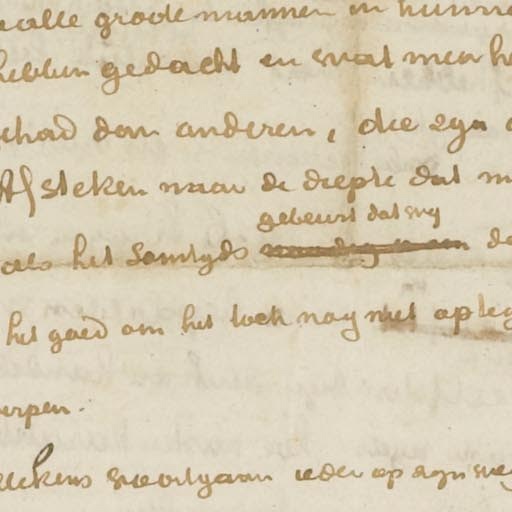 alle groote mannen in hunne
hebben gedacht en wat men he
gehad dan anderen, die zyn
Afsteken naar de diepte dat m
gebeurt dat wy
als het Somtyds de
het goed om het boek nog niet opleg
erpen.
telkens voortgaan ieder op zyn weg